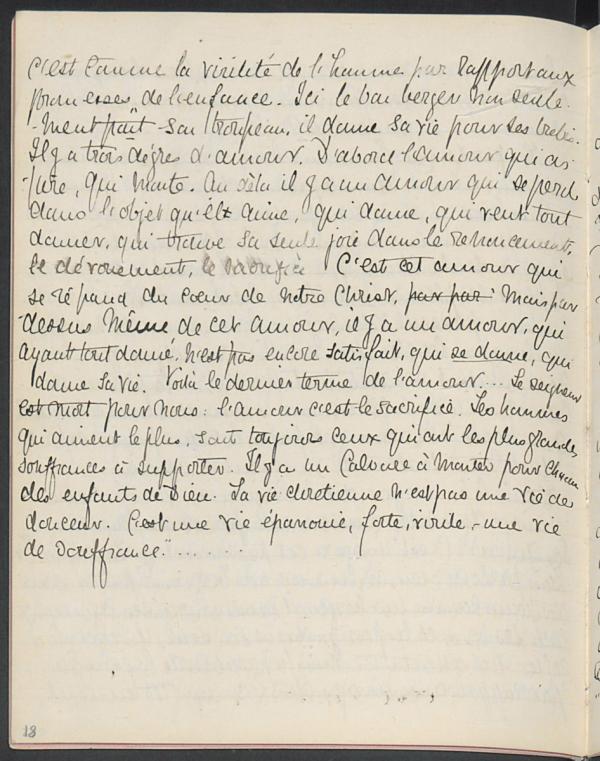 c'est comme la virilité de l'homme par rapport aux
promesses de l'enfance. Ici le bon berger non seule-
-ment paît son troupeau, il donne sa vie pour ses brebis.
Il y a trois degrés d'amour. D'abord l'amour qui as-
-pire, qui monte. Au delà il y a un amour qui se perd
dans l'objet qu'il aime, qui donne, qui veut tout
donner, qui trouve sa seule joie dans le renoncement,
le dévouement, le sacrifice C'est cet amour qui
se répand du coeur de notre Christ, par par mais par
-dessus même de cet amour, il y a un amour, qui
ayant tout donné, n'est pas encore satisfait, qui se donne, qui
donne sa vie. Voilà le dernier terme de l'amour.... Le seigneur
est mort pour nous: l'amour c'est le sacrifice. Les hommes
qui aiment le plus, sont toujours ceux qui ont les plus grandes
souffrances à supporter. Il y a un Calvaire à monter pour chacun
des enfants de Dieu. La vie chrétienne n'est pas une vie de
douceur. C'est une vie épanouie, forte, virile, une vie
de souffrance." .......
18